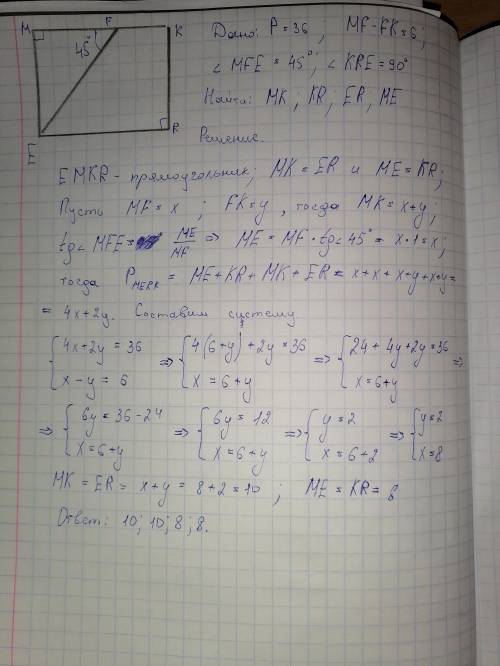 M F K Дано: P = 36 ; MF - FK = 6 ;
45° ∠ MFE = 45° ; ∠ KRE = 90°
Найти: MK ; KR ; ER ; ME
R
E
Решение.
EMKR - прямоугольник; MK = ER и ME = KR;
Пусть MF = x ; FK = y , тогда MK = x+y ;
tg∠ MFE = ME/MF ⇒ ME = MF · tg∠ 45° = x · 1 = x ;
тогда P = ME + KR + MK + ER = x + x + x+y + x+y =
= 4x + 2y. Составим систему
{ 4x + 2y = 36 ⇒ { 4(6+y) + 2y = 36 ⇒ { 24 + 4y + 2y = 36 ⇒
x - y = 6 x = 6 + y x = 6 + y
⇒ { 6y = 36 - 24 ⇒ { 6y = 12 ⇒ { y = 2 ⇒ { y = 2
x = 6 + y x = 6 + y x = 6 + 2 x = 8
MK = ER = x + y = 8 + 2 = 10 ; ME = KR = 8
Ответ: 10; 10; 8; 8.